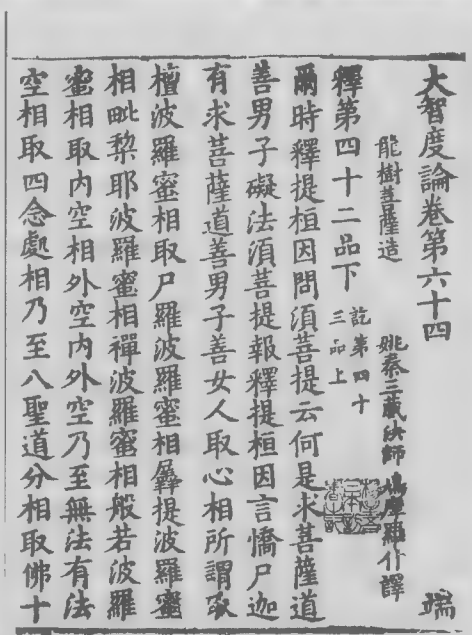 大智度論卷第六十四 端
龍樹菩薩造 姚秦三藏法師鳩摩羅什譯
釋第四十二品下 訖第四十三品上
爾時釋提桓因問須菩提云何是求菩薩道
善男子礙法須菩提報釋提桓因言憍尸迦
有求菩薩道善男子善女人取心相所謂取
檀波羅蜜相取尸羅波羅蜜相羼提波羅蜜
相毗梨耶波羅蜜相禪波羅蜜相般若波羅
蜜相取内空相外空内外空乃至無法有法
空相取四念處相乃至八聖道分相取佛十